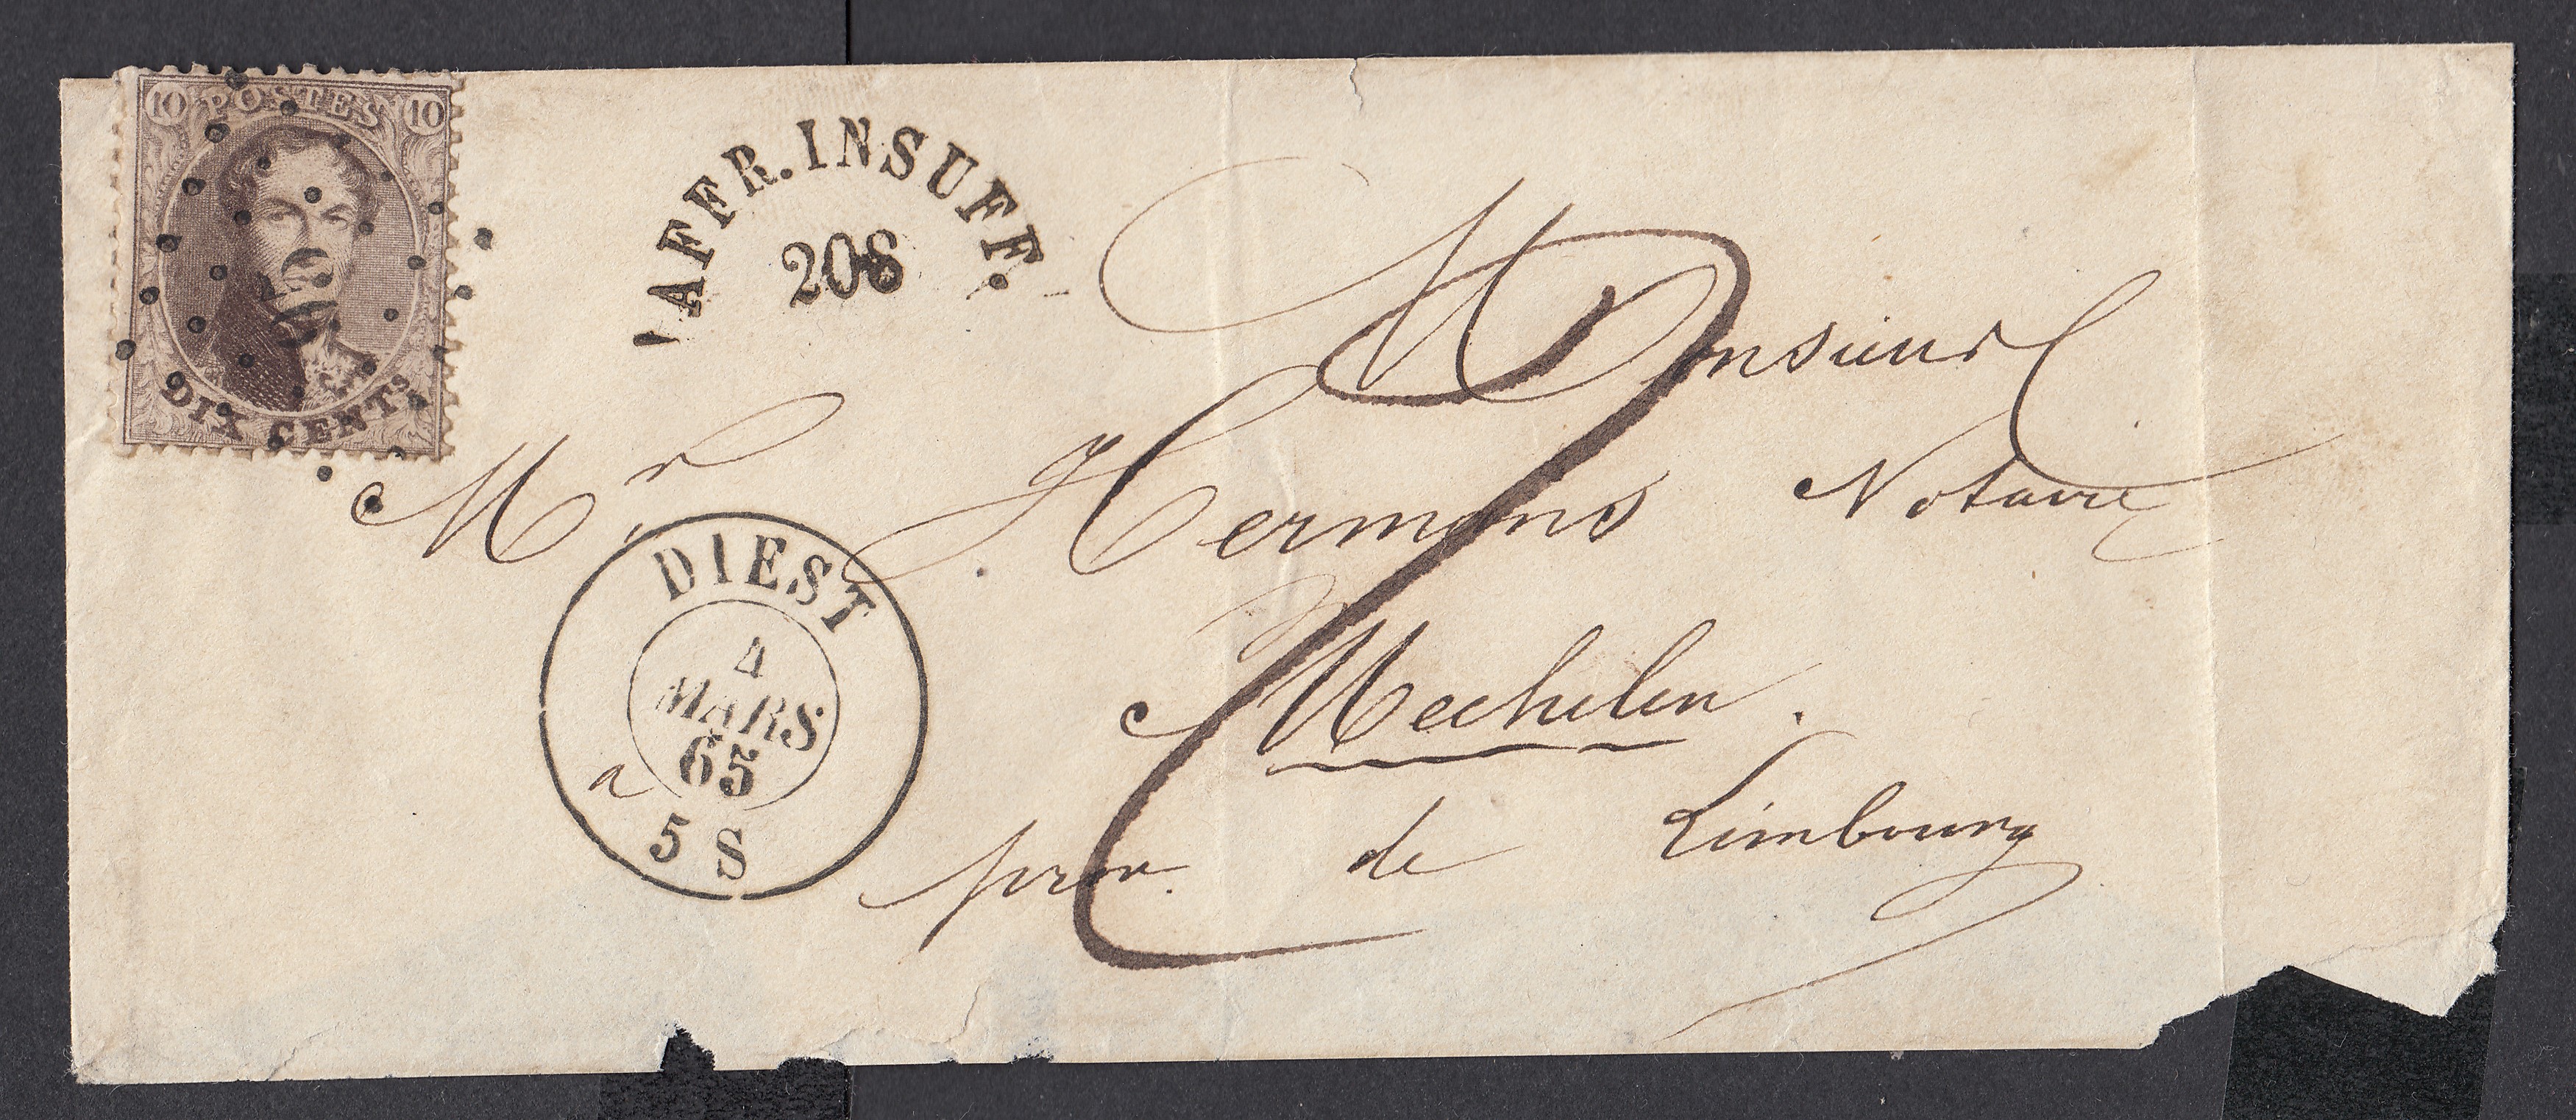 10 POSTES 10
DIX CENTS
AFFR. INSUFF.
208
Monsieur
Mr Hermans Notaire
a Mechelen.
prov. de Limbourg
2
DIEST
4
MARS
65
5 S